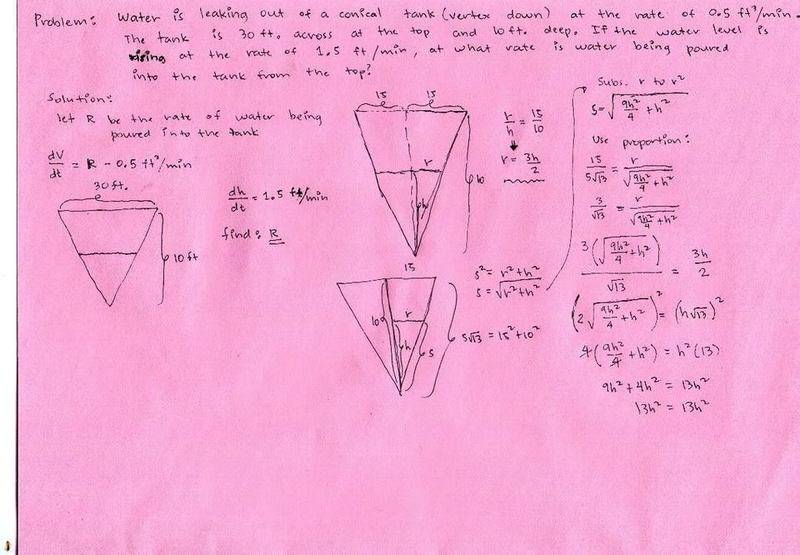 Problem: Water is leaking out of a conical tank (vertex down) at the rate of 0.5 ft³/min.
The tank is 30 ft. across at the top and 10 ft. deep. If the water level is
rising at the rate of 1.5 ft/min, at what rate is water being poured
into the tank from the top?
Solution:
let R be the rate of water being
poured into the tank
dV/dt = R - 0.5 ft³/min
30 ft.
10 ft
dh/dt = 1.5 ft/min
find: R
15 15
r
h
10
r/h = 15/10
r = 3h/2
15
10
r
h
s
s² = r² + h²
s = √(r² + h²)
5√13 = 15² + 10²
Subs. r to r²
s = √(9h²/4 + h²)
Use proportion:
15/(5√13) = r/√(9h²/4 + h²)
3/√13 = r/√(9h²/4 + h²)
3(√(9h²/4 + h²))/√13 = 3h/2
(2√(9h²/4 + h²))² = (h√13)²
4(9h²/4 + h²) = h²(13)
9h² + 4h² = 13h²
13h² = 13h²